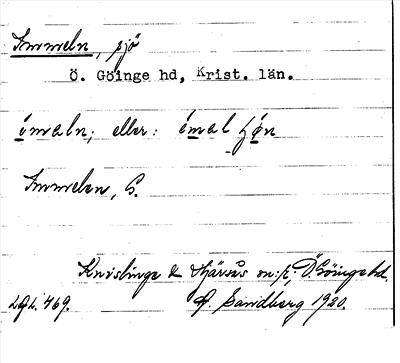 Immeln, sjö
Ö. Göinge hd, Krist. län.
ímaln; eller: ímal
Immelen, S.
Knislinge & Hjärsås sn:r, Ö. Göinge hd.
469. Sandberg 1920.